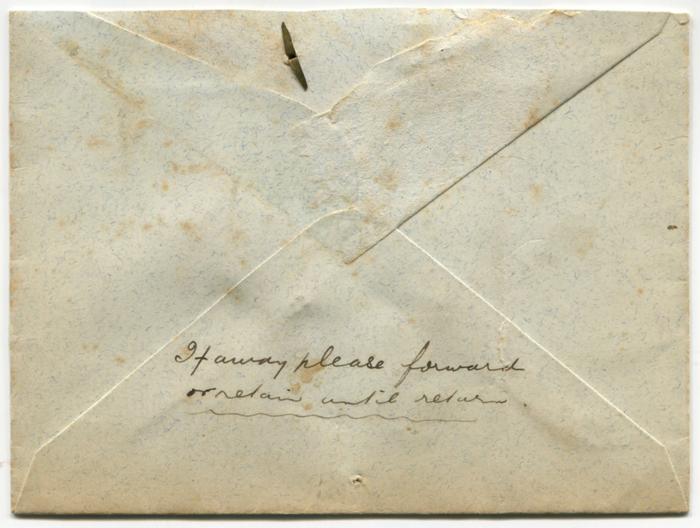 If away please forward
or retain until return.